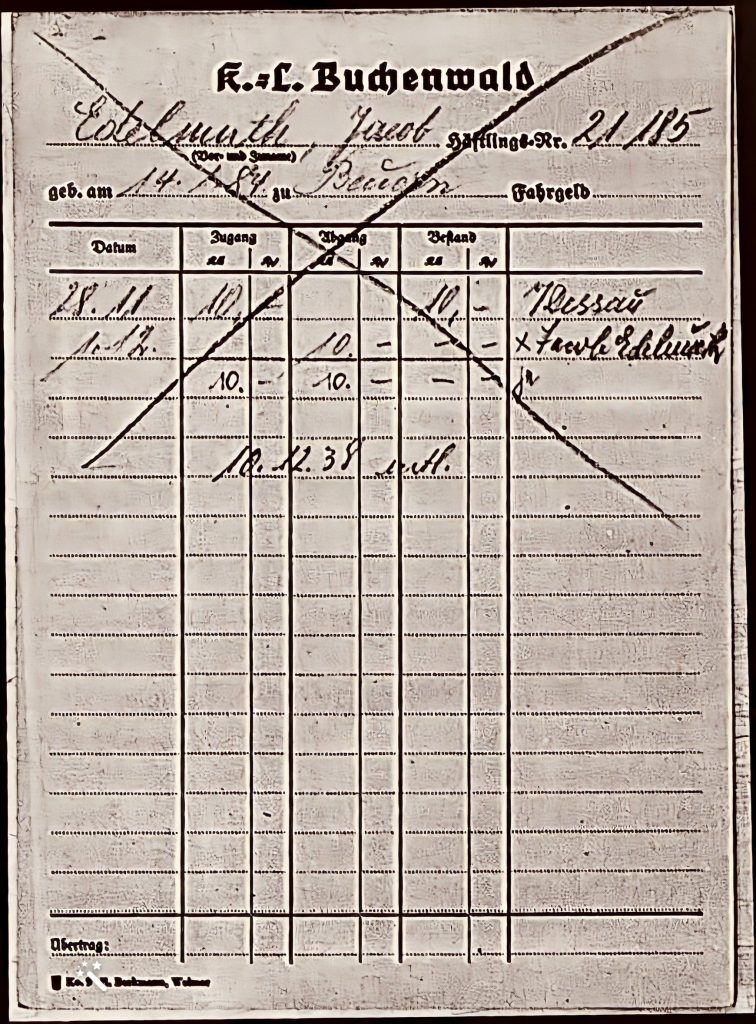 K.=L. Buchenwald
Edelmuth, Jacob Häftlings-Nr. 21185
(Vor- und Zuname)
geb. am 14. 1. 84 zu Fahrgeld
Datum Zugang Abgang Bestand
28. 11 10, - 10, - Dessau
1. 12. 10. - - - x Jacob Edelmuth
10. - 10. - - -
10. 12. 38 entl.
Übertrag:
Weimar